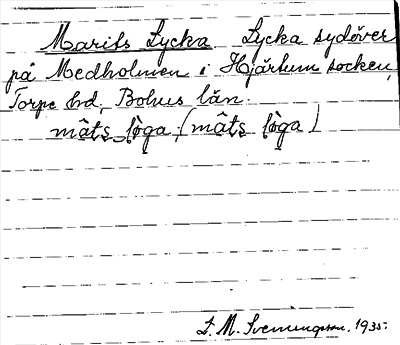 Marits Lycka Lycka sydöver
på Medholmen i Hjärtum socken,
Torpe hd, Bohus län.
mâts lo᷆ga (mâts lo᷆ga)
S. M. Svenungsson. 1935.